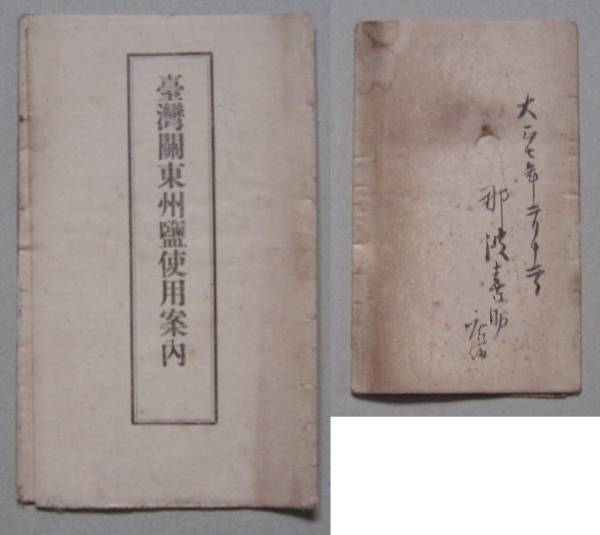 臺灣關東州鹽使用案內
大正七年二月十二日
那波喜助